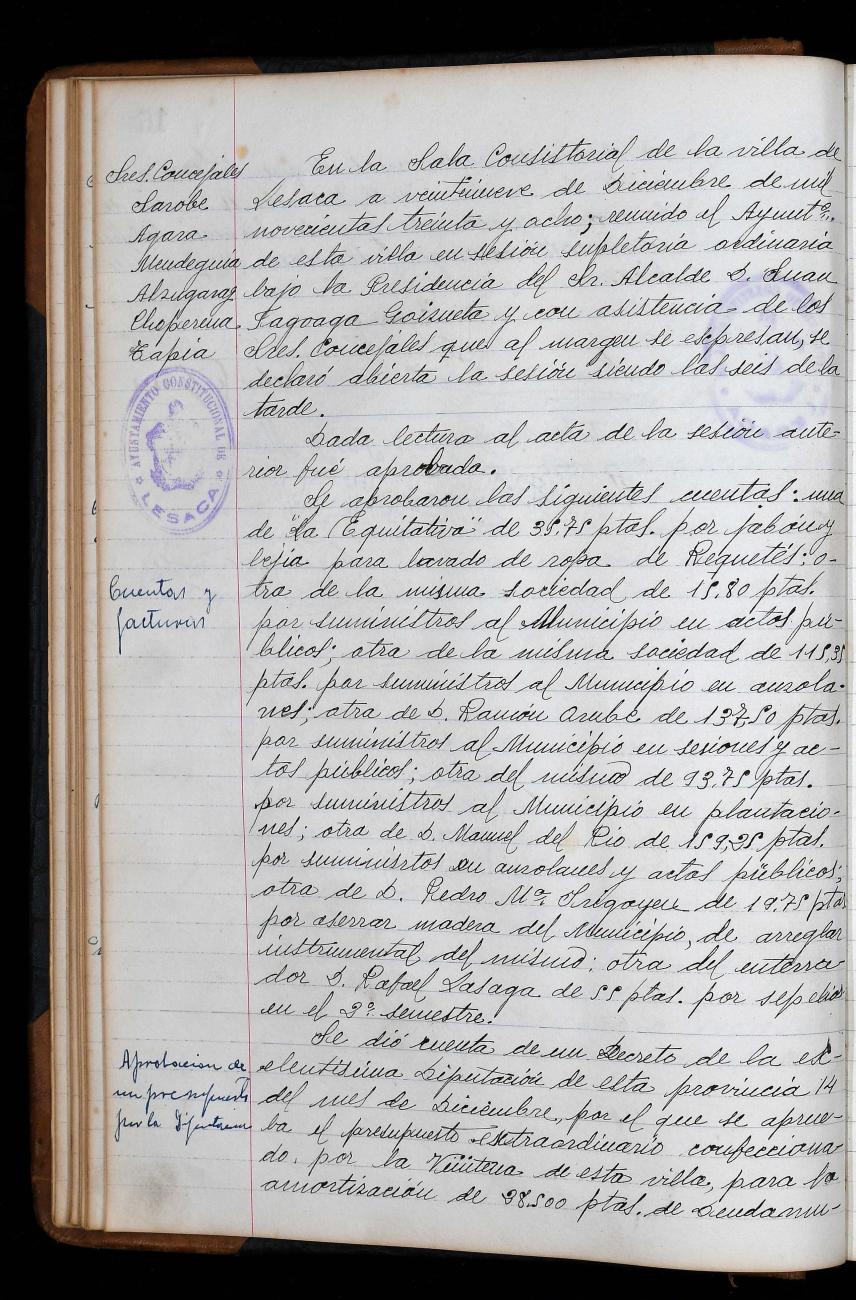 Sres. Concejales
Sarobe
Agara
Mendeguia
Alzugaray
Choperena
Tapia
AYUNTAMIENTO CONSTITUCIONAL DE
LESACA
En la Sala Consistorial de la villa de
Lesaca a veintinueve de Diciembre de mil
novecientos treinta y ocho; reunido el Ayuntº.
de esta villa en sesión supletoria ordinaria
bajo la Presidencia del Sr. Alcalde D. Juan
Tagoaga Goizueta y con asistencia de los
Sres. Concejales que al margen se escpresan, se
declaró abierta la sesión siendo las seis de la
tarde.
Dada lectura al acta de la sesión ante-
rior fué aprobada.
Se aprobaron las siguientes cuentas: una
de "La Equitativa" de 35,75 ptas. por jabón y
lejia para lavado de ropa de Requetés; o-
Cuentas y
facturas
tra de la misma sociedad de 15,80 ptas.
por suministros al Municipio en actos pú-
blicos; otra de la misma sociedad de 115,35
ptas. por suministros al Municipio en auzola-
nes; otra de D. Ramón de 137,50 ptas.
por suministros al Municipio en sesiones y ac-
tos públicos; otra del mismo de 93,75 ptas.
por suministros al Municipio en plantacio-
nes; otra de D. Manuel del Rio de 159,25 ptas.
por suminisrtos en auzolanes y actos públicos;
otra de D. Pedro Mª. Irigoyen de 19,75 ptas
por aserrar madera del Municipio, de arreglar
instrumental del mismo; otra del enterra-
dor D. Rafael Lasaga de 55 ptas. por sepelios
en el 2º. semestre.
Aprobacion de
un presupuesto
por la Diputacion
Se dió cuenta de un Decreto de la ex-
elentísima Diputación de esta provincia 14
del mes de Diciembre, por el que se aprue-
ba el presupuesto extraordinario confecciona-
do, por la Veintena de esta villa, para la
amortización de 98.500 ptas. de Deuda mu-